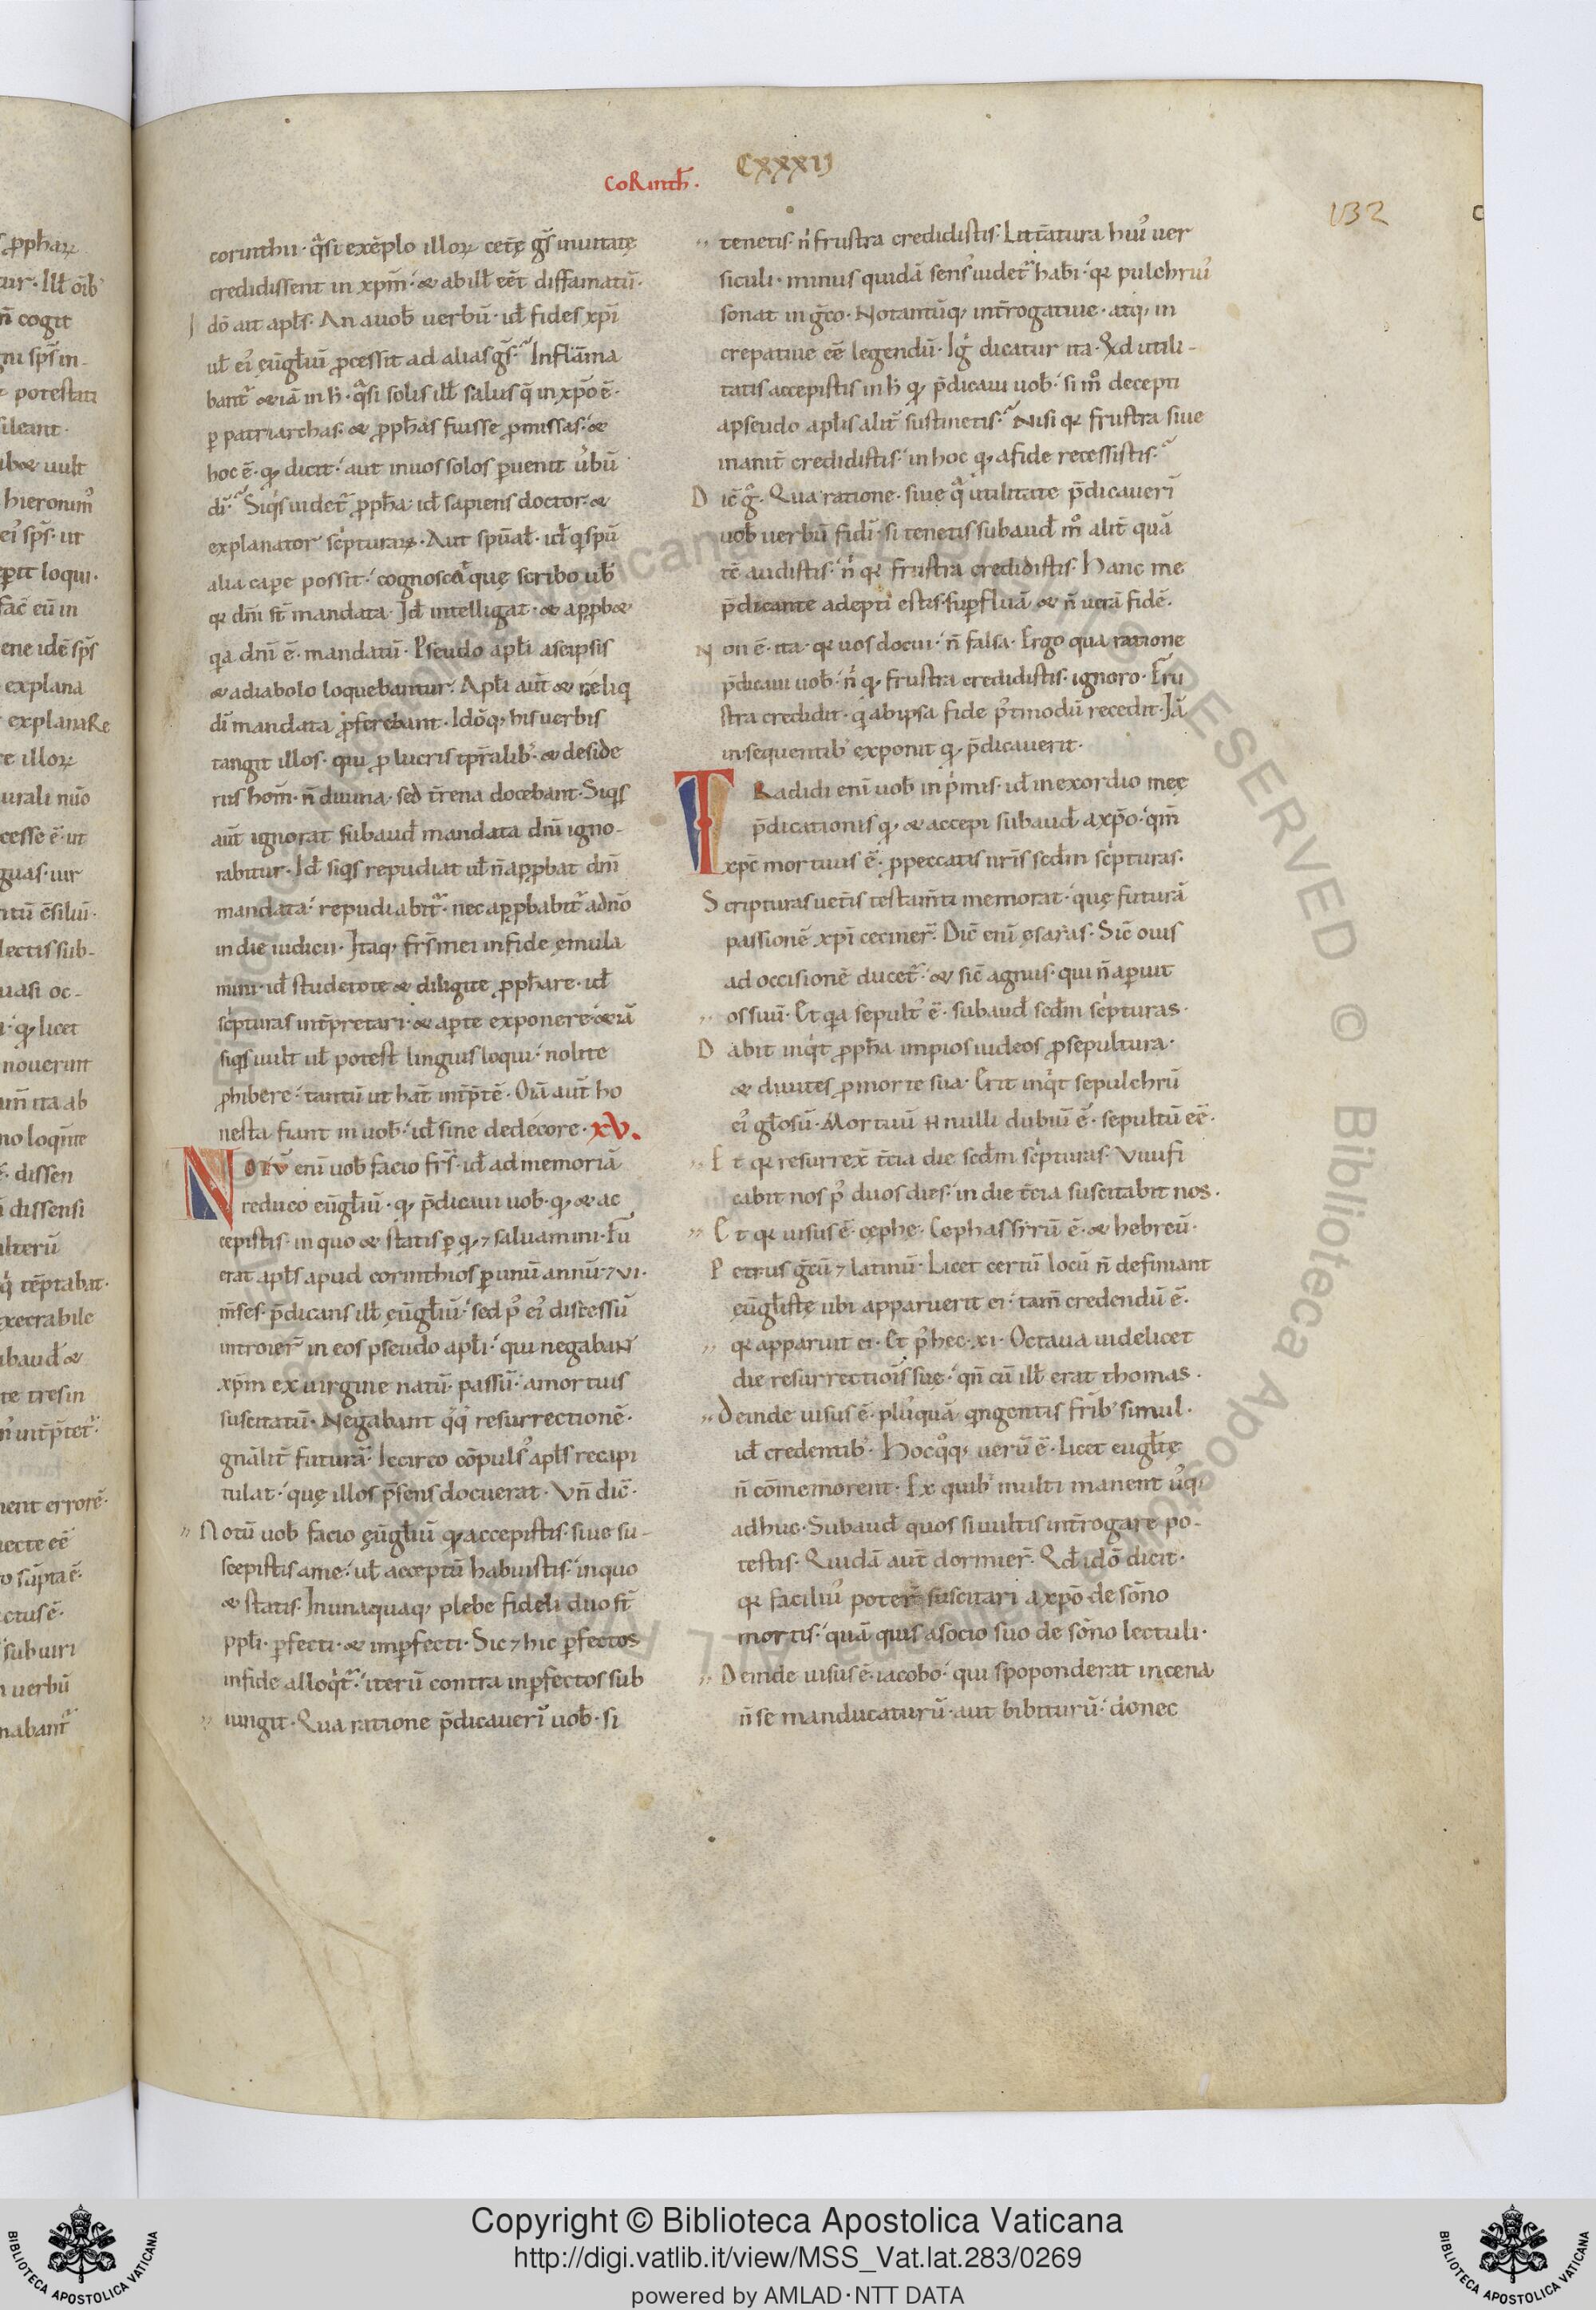 CoRinth̄.
CXXXIJ
132
corinthii· q̄si exēplo illoꝝ cetę gs̄ inuitatę
credidissent in xp̄m· ⁊ ab ill̄ eēt diffamatū·
dō ait apl̄s· An a uob̄ uerbū· id̄ fides xp̄i
ul̄ ei᾽ eūgl̄iū ꝓcessit ad alias gs̄· Inflāma
bant᾽ ⁊iā in h̄· q̄si solis ill̄ salus q̄ in xp̄o ē·
ꝑ patriarchas· ⁊ ꝓph̄as fuisse ꝓmissas· ⁊
hoc ē· qꝫ dicit· aut in uos solos ꝑuenit u᾽bū
dī· Siq᾽s uidet᾽ ꝓph̄a· id̄ sapiens doctor· ⁊
explanator sc᾽pturaꝝ· Aut spūal̄· id̄ q᾽ spū
alia capę possit· cognoscat quę scribo ub̄
qꝛ dn̄i st̄ mandata· Id̄ intelligat· ⁊ apꝓb⁊
q̄a dn̄i ē· mandatū· Pseudo apl̄i a seipsis
⁊ a diabolo loquebantur· Apl̄i aut̄ ⁊ reliq᾽
dī mandata ꝓferebant· Idōqꝫ his uerbis
tangit illos· qui ꝓ lucris tp̄ralib᾽· ⁊ deside
riis hom̄· n̄ diuina· sed t̄rena docebant· Siq᾽s
aut̄ ignorat subaud̄ mandata dn̄i igno-
rabitur· Id̄ siq᾽s repudiat ul̄ n̄ apꝓbat dn̄i
mandata· repudiabit᾽· nec apꝓbabit᾽ a dn̄o
in die iudicii· Itaqꝫ frs̄ mei in fide ęmula
mini· id̄ studetote ⁊ diligite ꝓph̄are· id̄
sc᾽pturas int̄pretari· ⁊ apte exponere· ⁊iā
siq᾽s uult ul̄ potest linguis loqui· nolite
ꝓhibere· tantū ut hāt int̄p̄tē· Oīa aut̄ ho
nesta fiant in uob̄· id̄ sine dedecore· XV.
NOTV enī uob̄ facio frs̄· id̄ ad memoriā
reduco eūgl̄iū· qꝫ p̄dicaui uob̄· qꝫ ⁊ ac
cepistis· in quo ⁊ statis ꝑ qꝫ ⁊ saluamini· Fu᾽
erat apl̄s apud corinthios ꝑ unū annū ⁊ vi·
m̄ses· p̄dicans ill̄ eūgl̄iū· sed p᾽ ei᾽ discessū
introier̄ in eos pseudo apl̄i· qui negabant
xp̄m ex uirgine natū· passū· a mortuis
suscitatū· Negabant q᾽q᾽ resurrectionē·
gn̄alit̄ futurā· Iccirco cōpuls᾽ apl̄s recapi
tulat· quę illos p̄sens docuerat· Vn̄ dic̄·
Notū uob̄ facio eūgl̄iū qꝫ accepistis· siue su-
scepistis a me· ul̄ acceptū habuistis· in quo
⁊ statis· In unaquaqꝫ plebe fideli duo st̄
ppl̄i· ꝑfecti· ⁊ imꝑfecti· Sic ⁊ hic ꝑfectos
in fide alloq᾽t᾽· iterū contra inꝑfectos sub
iungit· Qua ratione p̄dicauerī uob̄· si
tenetis· n᾽ frustra credidistis· Litt̄atura hui᾽ uer
siculi· minus quidā sens᾽ uidet᾽ hab̄i· qꝛ pulchriu᾽
sonat in gc̄o· Notandūqꝫ int̄rogatiue· atqꝫ in
crepatiue eē legendū· Ig᾽ dicatur ita· Qd utili-
tatis accepistis in h̄ qꝫ p̄dicaui uob̄· si m᾽ decepti
a pseudo apl̄is alit̄ sustinetis· Nisi qꝛ frustra siue
inanit̄ credidistis· in hoc qꝫ a fide recessistis·
Dic̄ g᾽· Qua ratione· siue q᾽ utilitate p̄dicauerī
uob̄ uerbū fidi· si tenetis subaud̄ m᾽ alit̄ quā
tē audistis· n᾽ qꝛ frustra credidistis· Hanc me
p̄dicante adepti estis· suꝑfluā ⁊ n̄ uerā fidē·
Non ē· ita· qꝛ uos docui· n̄ falsa· Ergo qua ratione
p̄dicaui uob̄· n᾽ qꝫ frustra credidistis· ignoro· Fru
stra credidit· q᾽ ab ipsa fide p᾽tmodū recedit· Iā
in sequentib᾽ exponit qꝫ p̄dicauerit·
TRadidi enī uob̄ in p᾽mis· id̄ in exordio meę
p̄dicationis qꝫ ⁊ accepi subaud̄ a xp̄o· qm̄
xpc̄ mortuus ē· ꝓ peccatis nr̄is scd̄m sc᾽pturas·
Scripturas uet̄is testam̄ti memorat· quę futurā
passionē xp̄i ceciner̄· Dic̄ enī esaias· Sic̄ ouis
ad occisionē ducet᾽· ⁊ sic̄ agnus· qui n̄ aꝑuit
os suū· Et q̄a sepult᾽ ē· subaud̄ scd̄m sc᾽pturas·
Dabit inq᾽t ꝓph̄a impios iudeos ꝓ sepultura·
⁊ diuites ꝓ morte sua· Erit inq᾽t sepulchrū
ei᾽ gl̄osū· Mortuū N nulli dubiū ē· sepultū eē·
Et qꝛ resurrex̄ t̄cia die scd̄m sc᾽pturas· Viuifi
cabit nos p᾽ duos dies· in die t̄cia suscitabit nos·
Et qꝛ uisus ē· cęphę· Cephas sirrū ē· ⁊ hebreū·
Petrus gc̄ū ⁊ latinū· Licet certū locū n̄ definiant
eūgl̄istę ubi apparuerit ei· tam̄ credendū ē·
qꝛ apparuit ei· Et p᾽ hec· xi· Octaua uidelicet
die resurrectiōis suę· qn̄ cū ill̄ erat thomas·
Deinde uisus ē· plu᾽quā q᾽ngentis frīb᾽ simul·
id̄ credentib᾽· Hoc q᾽qꝫ uerū ē· licet eugl̄istę
n̄ cōmemorent· Ex quib᾽ multi manent u᾽qꝫ
adhuc· Subaud̄ quos si uultis int̄rogare po-
testis· Quidā aut̄ dormier̄· Qd̄ idō dicit·
qꝛ faciliu᾽ poter̄ suscitari a xp̄o de sōno
mortis· quā quis a socio suo de sōno lectuli·
Deinde uisus ē· iacobo· qui spoponderat in cena
n̄ se manducaturū· aut bibiturū· donec
Copyright © Biblioteca Apostolica Vaticana
http://digi.vatlib.it/view/MSS_Vat.lat.283/0269
powered by AMLAD·NTT DATA
BIBLIOTECA APOSTOLICA VATICANA
BIBLIOTECA APOSTOLICA VATICANA